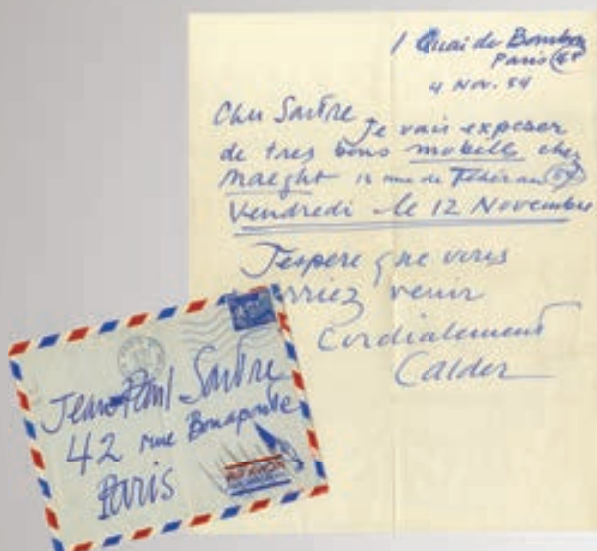 1 Quai de Bourbon
Paris
4 Nov. 54
Cher Sartre
Je vais exposer
de tres bons mobiles chez
Maeght 13 rue de Téhéran
Vendredi le 12 Novembre
J'espere que vous
venir
Cordialement
Calder
Jean Paul Sartre
42 rue Bonaparte
Paris
PAR AVION